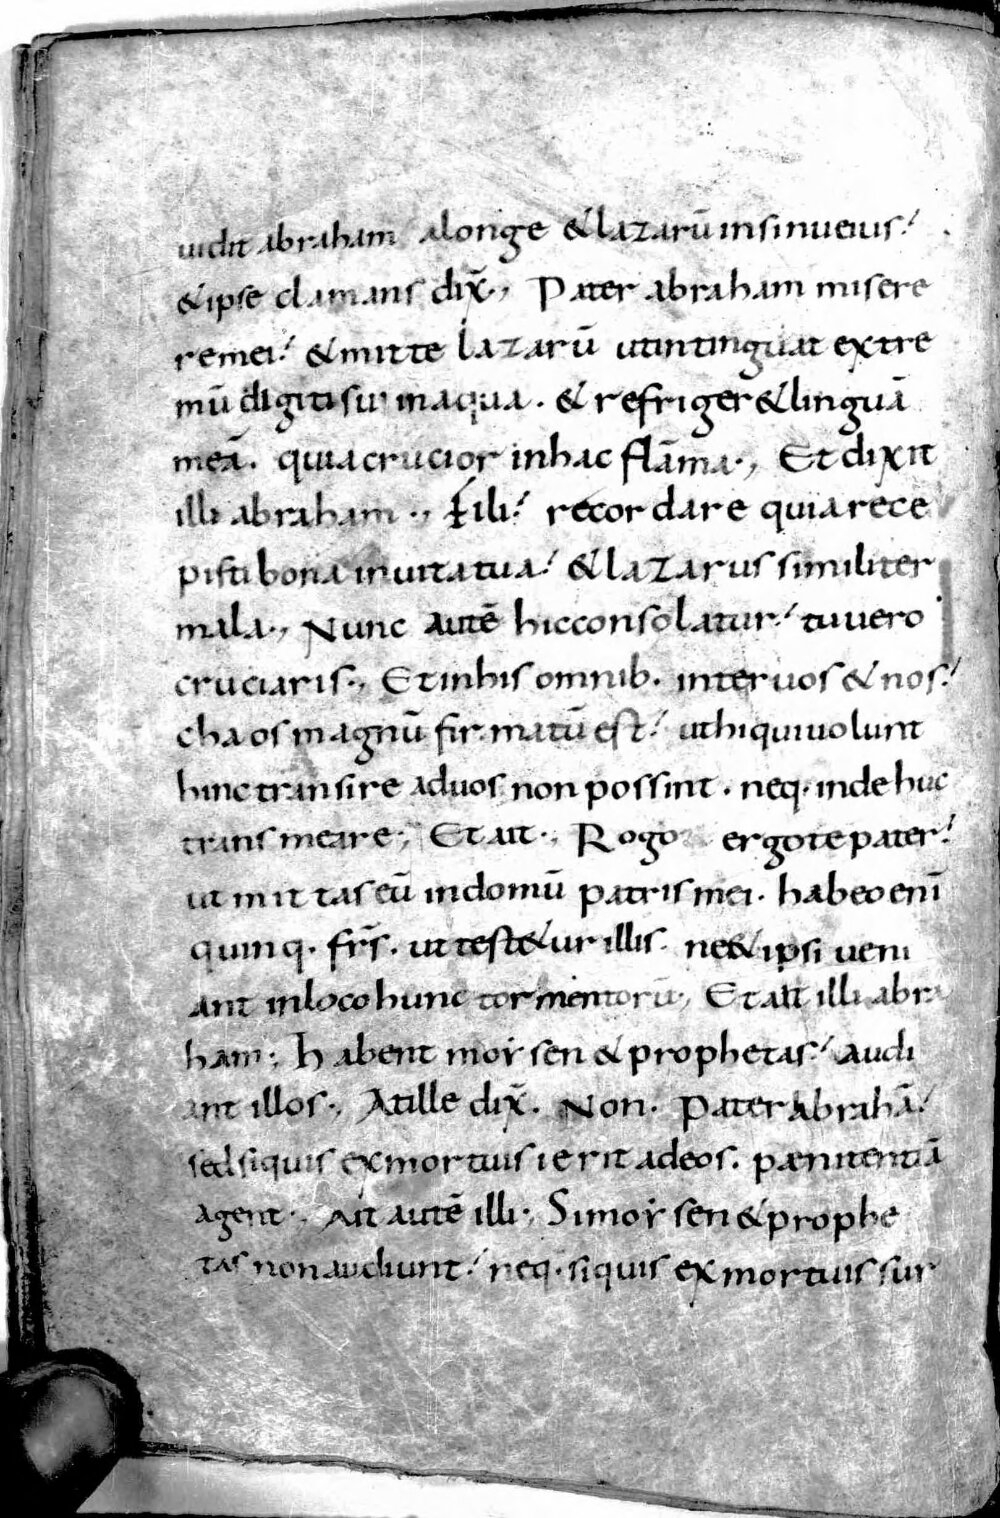 uidit abraham alonge & lazarū insinueius
& ipse clamans dix̄., Pater abraham misere
remei & mitte lazarū utintinguat extre
mū digitisui inaqua. & refriger& linguā
meā. quiacrucior inhac flāma., Et dixit
illi abraham., Fili recordare quiarece
pisti bona inuitatua & lazarus similiter
mala., Nunc autē hicconsolatur tuuero
cruciaris., Et inhis omnib. interuos & nos
chaos magnū firmatū est uthiquiuolunt
hinc transire aduos non possint. neq. inde huc
transmeare., Et ait., Rogo ergote pater
ut mittas eū indomū patris mei. habeo enī
quinq. fr̄s. ut test&ur illis. ne& ipsi ueni
ant inlocohunc tormentorū., Et ait illi abra
ham., Habent moẏsen & prophetas audi
ant illos., Atille dix̄. Non. Pater abrahā
sed siquis exmortuis ierit adeos. pænitentiā
agent., Ait autē illi., Simoẏsen & prophe
tas non audiunt neq. siquis exmortuis sur